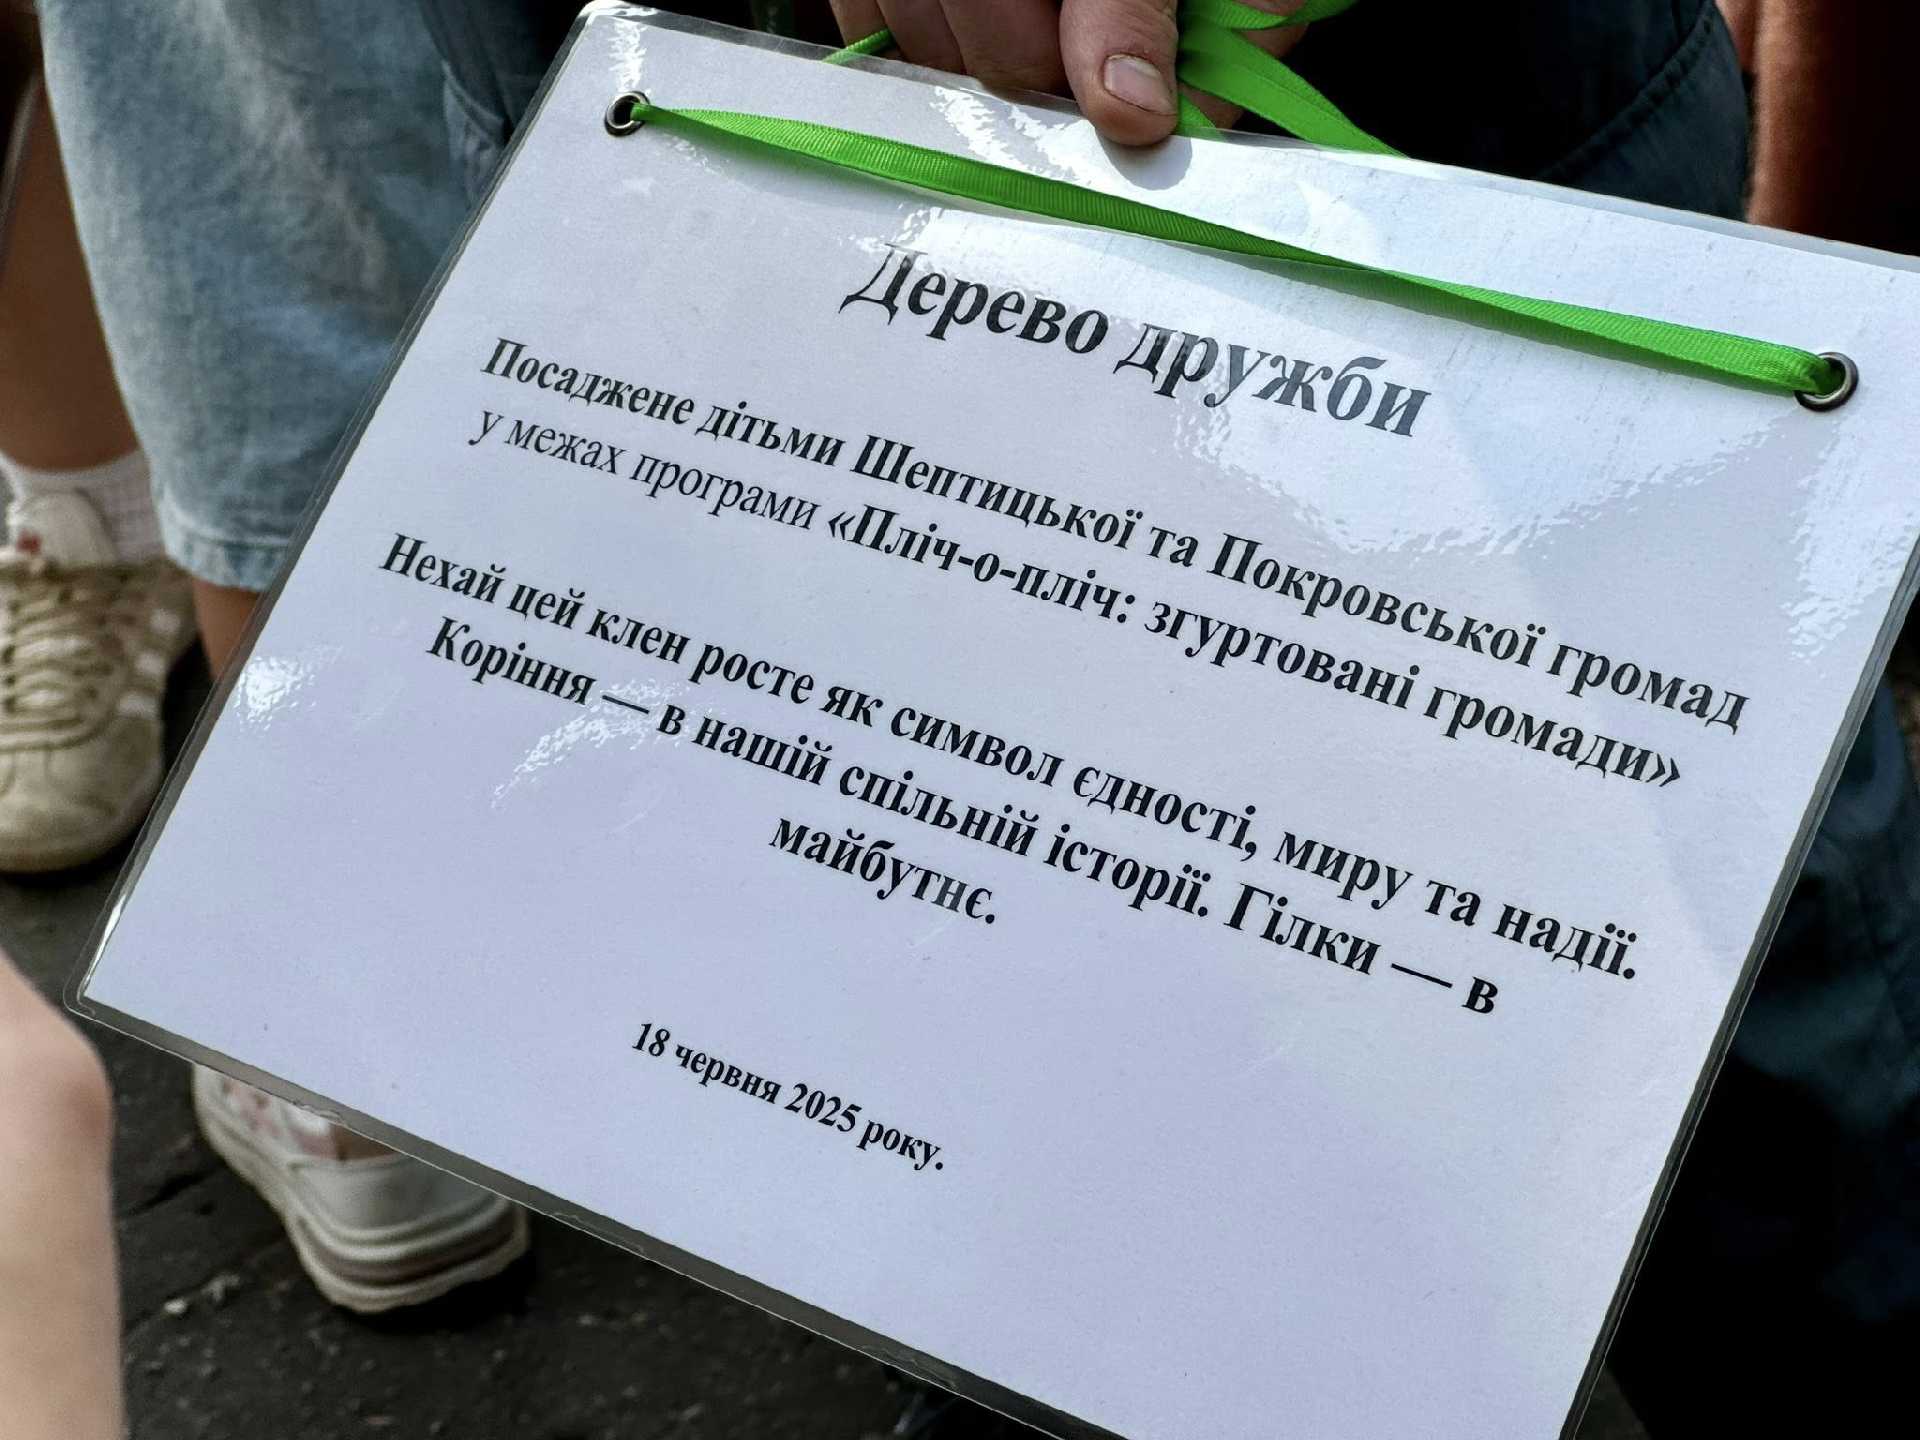 Дерево дружби
Посаджене дітьми Шептицької та Покровської громад
у межах програми «Пліч-о-пліч: згуртовані громади»
Нехай цей клен росте як символ єдності, миру та надії.
Коріння — в нашій спільній історії. Гілки — в
майбутнє.
18 червня 2025 року.